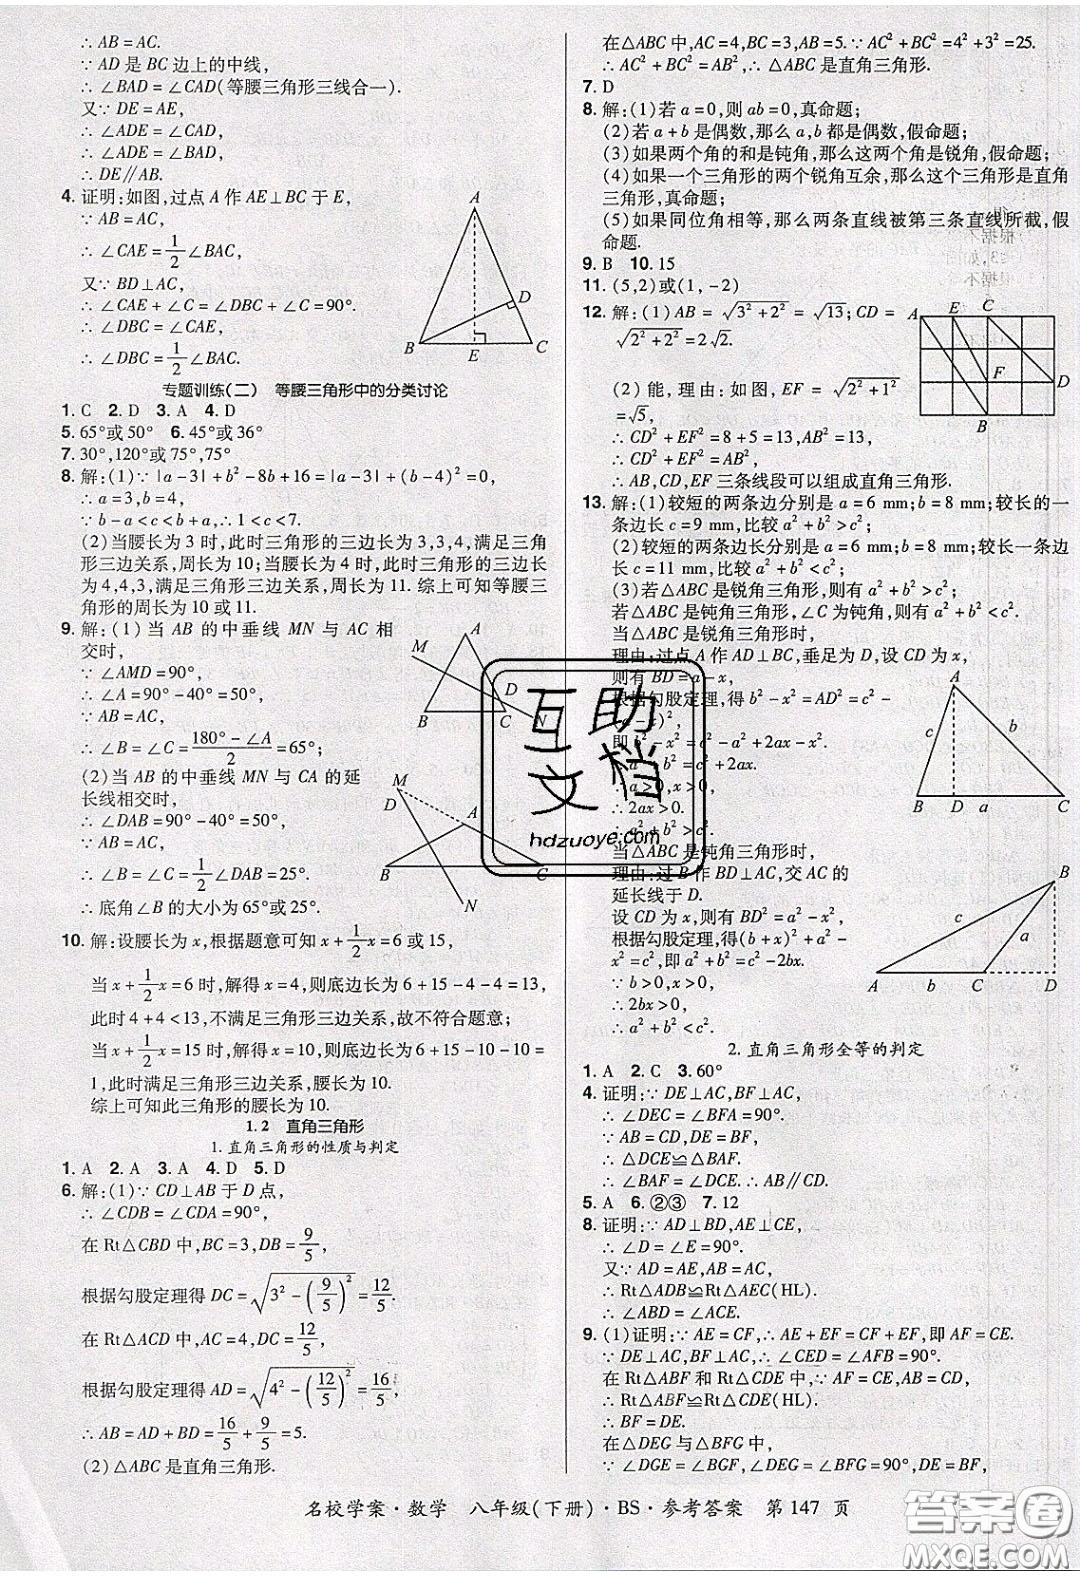 ∴ AB = AC.
∵ AD 是 BC 边上的中线,
∴ ∠BAD = ∠CAD(等腰三角形三线合一).
又∵ DE = AE,
∴ ∠ADE = ∠CAD,
∴ ∠ADE = ∠BAD,
∴ DE∥AB.
4. 证明:如图,过点 A 作 AE⊥BC 于 E,
∵ AB = AC,
∴ ∠CAE = 1/2 ∠BAC,
又∵ BD⊥AC,
∴ ∠CAE + ∠C = ∠DBC + ∠C = 90°.
∴ ∠DBC = ∠CAE,
∴ ∠DBC = 1/2 ∠BAC.
A
D
B
E
C
专题训练(二) 等腰三角形中的分类讨论
1. C 2. D 3. A 4. D
5. 65°或50° 6. 45°或36°
7. 30°,120°或75°,75°
8. 解:(1)∵ |a-3|+b²-8b+16=|a-3|+(b-4)²=0,
∴ a=3,b=4,
∵ b-a<c<b+a,∴ 1<c<7.
(2)当腰长为 3 时,此时三角形的三边长为 3,3,4,满足三角
形三边关系,周长为 10;当腰长为 4 时,此时三角形的三边长
为 4,4,3,满足三角形三边关系,周长为 11. 综上可知等腰三
角形的周长为 10 或 11.
9. 解:(1)当 AB 的中垂线 MN 与 AC 相
交时,
∵ ∠AMD=90°,
∴ ∠A=90°-40°=50°,
∵ AB=AC,
∴ ∠B=∠C=(180°-∠A)/2=65°;
(2)当 AB 的中垂线 MN 与 CA 的延
长线相交时,
∴ ∠DAB=90°-40°=50°,
∵ AB=AC,
∴ ∠B=∠C=1/2∠DAB=25°.
∴ 底角∠B 的大小为 65°或 25°.
M
A
D
B
C
N
M
D
A
B
C
N
10. 解:设腰长为 x,根据题意可知 x+1/2x=6 或 15,
当 x+1/2x=6 时,解得 x=4,则底边长为 6+15-4-4=13,
此时 4+4<13,不满足三角形三边关系,故不符合题意;
当 x+1/2x=15 时,解得 x=10,则底边长为 6+15-10-10=
1,此时满足三角形三边关系,腰长为 10.
综上可知此三角形的腰长为 10.
1.2 直角三角形
1. 直角三角形的性质与判定
1. A 2. A 3. A 4. D 5. D
6. 解:(1)∵ CD⊥AB 于 D 点,
∴ ∠CDB=∠CDA=90°,
在 Rt△CBD 中,BC=3,DB=9/5,
根据勾股定理得 DC=√(3²-(9/5)²)=12/5.
在 Rt△ACD 中,AC=4,DC=12/5,
根据勾股定理得 AD=√(4²-(12/5)²)=16/5,
∴ AB=AD+BD=16/5+9/5=5.
(2)△ABC 是直角三角形.
在△ABC 中,AC=4,BC=3,AB=5. ∵ AC²+BC²=4²+3²=25.
∴ AC²+BC²=AB²,∴ △ABC 是直角三角形.
7. D
8. 解:(1)若 a=0,则 ab=0,真命题;
(2)若 a+b 是偶数,那么 a,b 都是偶数,假命题;
(3)如果两个角的和是钝角,那么这两个角是锐角,假命题;
(4)如果一个三角形的两个锐角互余,那么这个三角形是直角
三角形,真命题;
(5)如果同位角相等,那么两条直线被第三条直线所截,假
命题.
9. B 10. 15
11. (5,2)或(1,-2)
12. 解:(1) AB = √(3²+2²) = √13;CD =
√(2²+2²)=2√2.
(2) 能,理由:如图,EF = √(2²+1²)
=√5,
∴ CD²+EF²=8+5=13,AB²=13,
∴ CD²+EF²=AB²,
∴ AB,CD,EF 三条线段可以组成直角三角形.
A
E
C
F
D
B
13. 解:(1)较短的两条边分别是 a=6 mm;b=8 mm;较长的一
条边长 c=9 mm,比较 a²+b²>c²;
(2)较短的两条边长分别是 a=6 mm;b=8 mm;较长一条边
长 c=11 mm,比较 a²+b²<c²;
(3)若△ABC 是锐角三角形,则有 a²+b²>c²;
若△ABC 是钝角三角形,∠C 为钝角,则有 a²+b²<c².
当△ABC 是锐角三角形时,
理由:过点 A 作 AD⊥BC,垂足为 D,设 CD 为 x,
则有 BD=a-x,
根据勾股定理,得 b²-x²=AD²=c²-
(a-x)²,
即 b²-x²=c²-a²+2ax-x².
∴ a²+b²=c²+2ax.
∵ a>0,x>0,
∴ 2ax>0.
∴ a²+b²>c².
当△ABC 是钝角三角形时,
理由:过 B 作 BD⊥AC,交 AC 的
延长线于 D.
设 CD 为 x,则有 BD²=a²-x²,
根据勾股定理,得(b+x)²+a²-
x²=c²,即 a²+b²=c²-2bx.
∵ b>0,x>0,
∴ 2bx>0,
∴ a²+b²<c².
A
c
b
B
D
a
C
B
c
a
A
b
C
D
2. 直角三角形全等的判定
1. A 2. C 3. 60°
4. 证明:∵ DE⊥AC,BF⊥AC,
∴ ∠DEC=∠BFA=90°.
∵ AB=CD,DE=BF,
∴ △DCE≌△BAF.
∴ ∠BAF=∠DCE. ∴ AB∥CD.
5. A 6. ②③ 7. 12
8. 证明:∵ AD⊥BD,AE⊥CE,
∴ ∠D=∠E=90°.
又∵ AD=AE,AB=AC,
∴ Rt△ADB≌Rt△AEC(HL).
∴ ∠ABD=∠ACE.
9. (1)证明:∵ AE=CF,∴ AE+EF=CF+EF,即 AF=CE.
∵ DE⊥AC,BF⊥AC,∴ ∠CED=∠AFB=90°.
在 Rt△ABF 和 Rt△CDE 中,∵ AF=CE,AB=CD,
∴ Rt△ABF≌Rt△CDE(HL).
∴ BF=DE.
在△DEG 与△BFG 中,
∵ ∠DGE=∠BGF,∠DEG=∠BFG=90°,DE=BF,
互助
文档
hdzuoye.com
名校学案·数学 八年级(下册)·BS·参考答案 第 147 页
答案圈
MXQE.COM